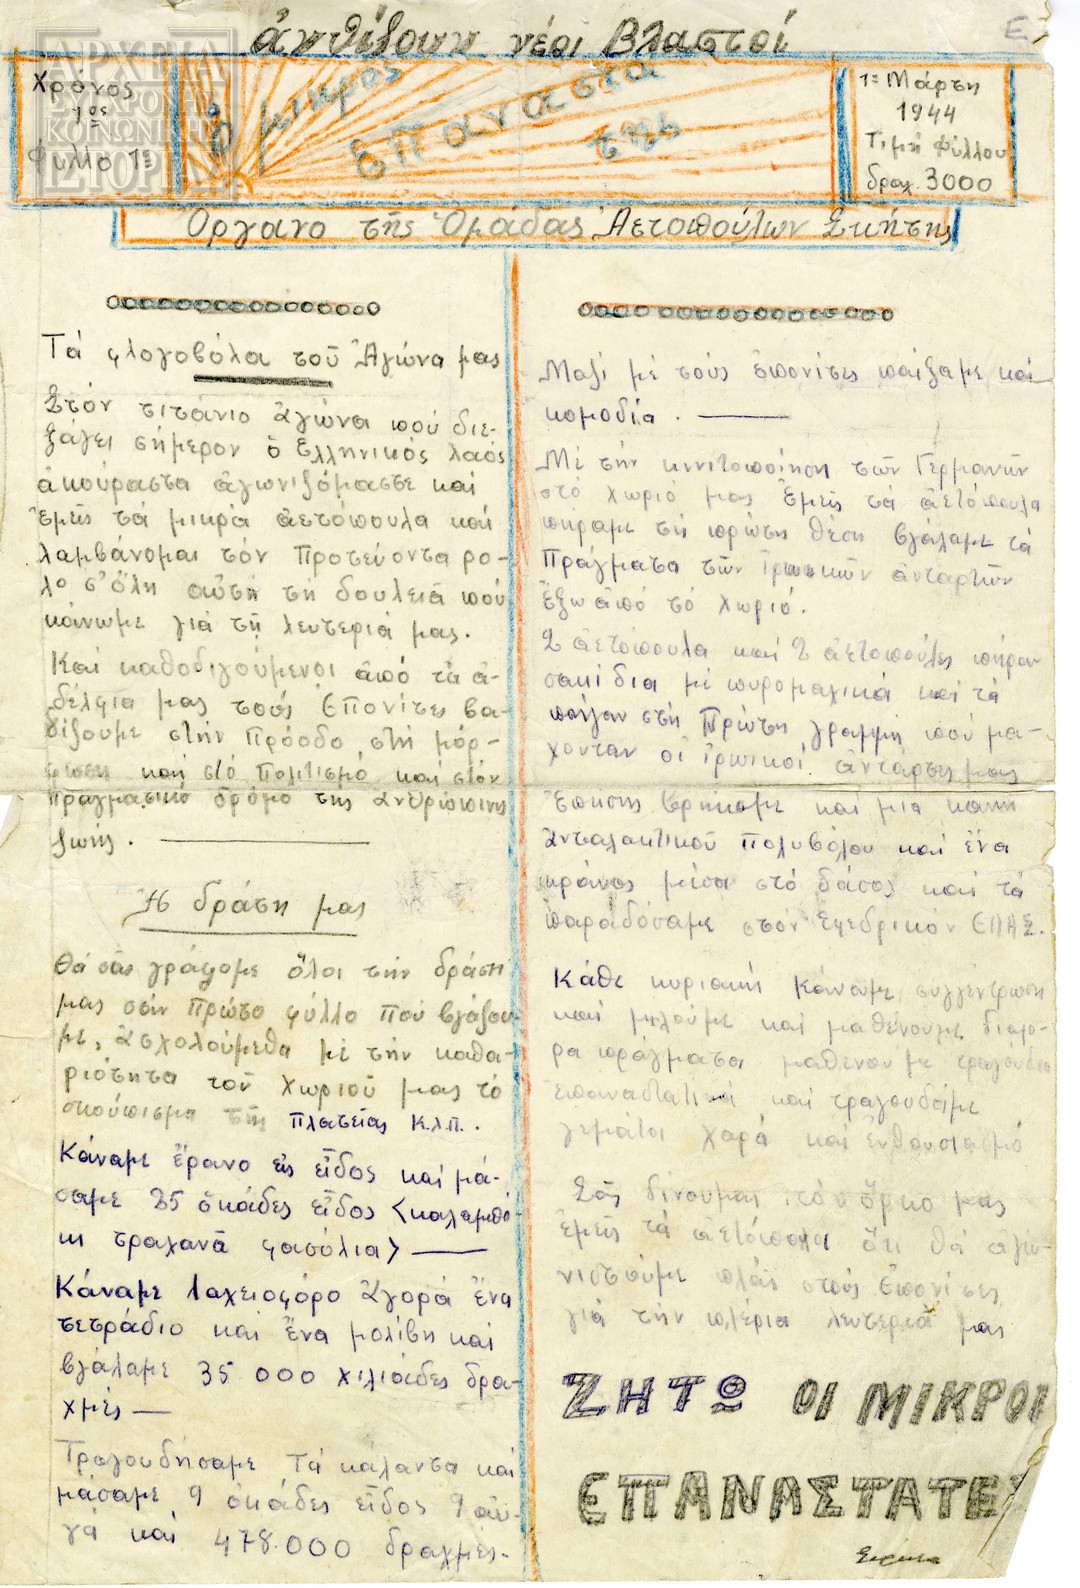 ἀνθίζουν νέοι βλαστοί
Ε
ΑΡΧΕΙΑ
ΣΥΓΧΡΟΝΗΣ
ΚΟΙΝΩΝΙΚΗΣ
ΙΣΤΟΡΙΑΣ
Χρόνος
1ος
Φυλλο 1ο
Ὁ μικρος
Επαναστά
της
1η Μάρτη
1944
Τιμή Φύλλου
δραχ. 3000
Ὄργανο τῆς Ὁμάδας Ἀετοπούλων Σκήτης
Τά φλογοβόλα τοῦ Ἀγώνα μας
Στόν τιτάνιο ἀγώνα πού διε-
ξάγει σήμερον ὁ Ἑλληνικός λαός
ἀκούραστα ἀγωνιζόμαστε και
Ἐμεῖς τά μικρά ἀετόπουλα καί
λαμβάνομαι τόν Προτεύοντα ρο-
λο σ' ὅλη αὐτή τή δουλειά πού
κάνωμε γιά τή λευτεριά μας.
Καί καθοδιγούμενοι ἀπό τά ἀ-
δέλφια μας τούς Επονίτες βα-
δίζουμε στήν Πρόοδο στή μόρ-
φωση καί στό Πολιτισμό καί στόν
πραγματικό δρόμο της ανθρώπινης
ζωής.
Ἡ δράση μας
Θά σᾶς γράψομε ὅλοι τήν δράση
μας σάν Πρώτο φύλλο πού βγάζου
με, ἀσχολούμεθα μέ τήν καθα-
ριότητα τοῦ Χωριοῦ μας τό
σκούπισμα τῆς πλατείας Κ.λ.π.
Κάναμε ἔρανο εἰς εἶδος και μά-
σαμε 35 ὀκάδες εἶδος <καλαμπό
κι τραχανᾶ φασόλια>
Κάναμε λαχειοφόρο ἀγορά ἕνα
τετράδιο και ἕνα μολίβη καί
βγάλαμε 35 000 χιλιάδες δρα-
χμές
Τραγουδήσαμε τά καλαντα καί
μάσαμε 9 ὀκάδες εἶδος 9 αὐ-
γά καί 478.000 δραχμές.
Μαζί μέ τούς ἐπονίτες παίξαμε καί
κομοδία.
Μέ τήν κινιτοποίηση τῶν Γερμανῶν
στό χωριό μας Ἐμεῖς τά ἀετόπουλα
πήραμε τή πρώτη θέση βγάλαμε τά
Πράγματα τῶν ἱρωικῶν ἀνταρτῶν
ἔξω ἀπό τό χωριό.
2 ἀετόπουλα καί 2 ἀετοπούλες πήραν
σακίδια μέ πυρομαχικά καί τά
πήγαν στή Πρώτη γραμμή πού μά-
χονταν οἱ ἱρωικοί ἀντάρτες μας
Ἐπίσης βρήκαμε καί μια κανη
ἀνταλακτικοῦ Πολυβόλου καί ἕνα
κράνος μέσα στό δάσος καί τά
παραδόσαμε στόν Ἐφεδρικόν ΕΛΑΣ.
Κάθε κυριακή κάνουμε συγγέντρωση
καί μιλούμε καί μαθένουμε διαφο-
ρα πράγματα μαθενουμε τραγούδια
Ἐπαναστατικά καί τραγουδάμε
γεμάτοι χαρά καί ἐνθουσιασμό
Σᾶς δίνουμαι τόν ὅρκο μας
ἐμεῖς τά ἀετόπουλα ὅτι θά ἀγω-
νιστοῦμε πλάϊ στούς ἐπονίτες
γιά τήν πλέρια λευτεριά μας
ΖΗΤΩ ΟΙ ΜΙΚΡΟΙ
ΕΠΑΝΑΣΤΑΤΕΣ